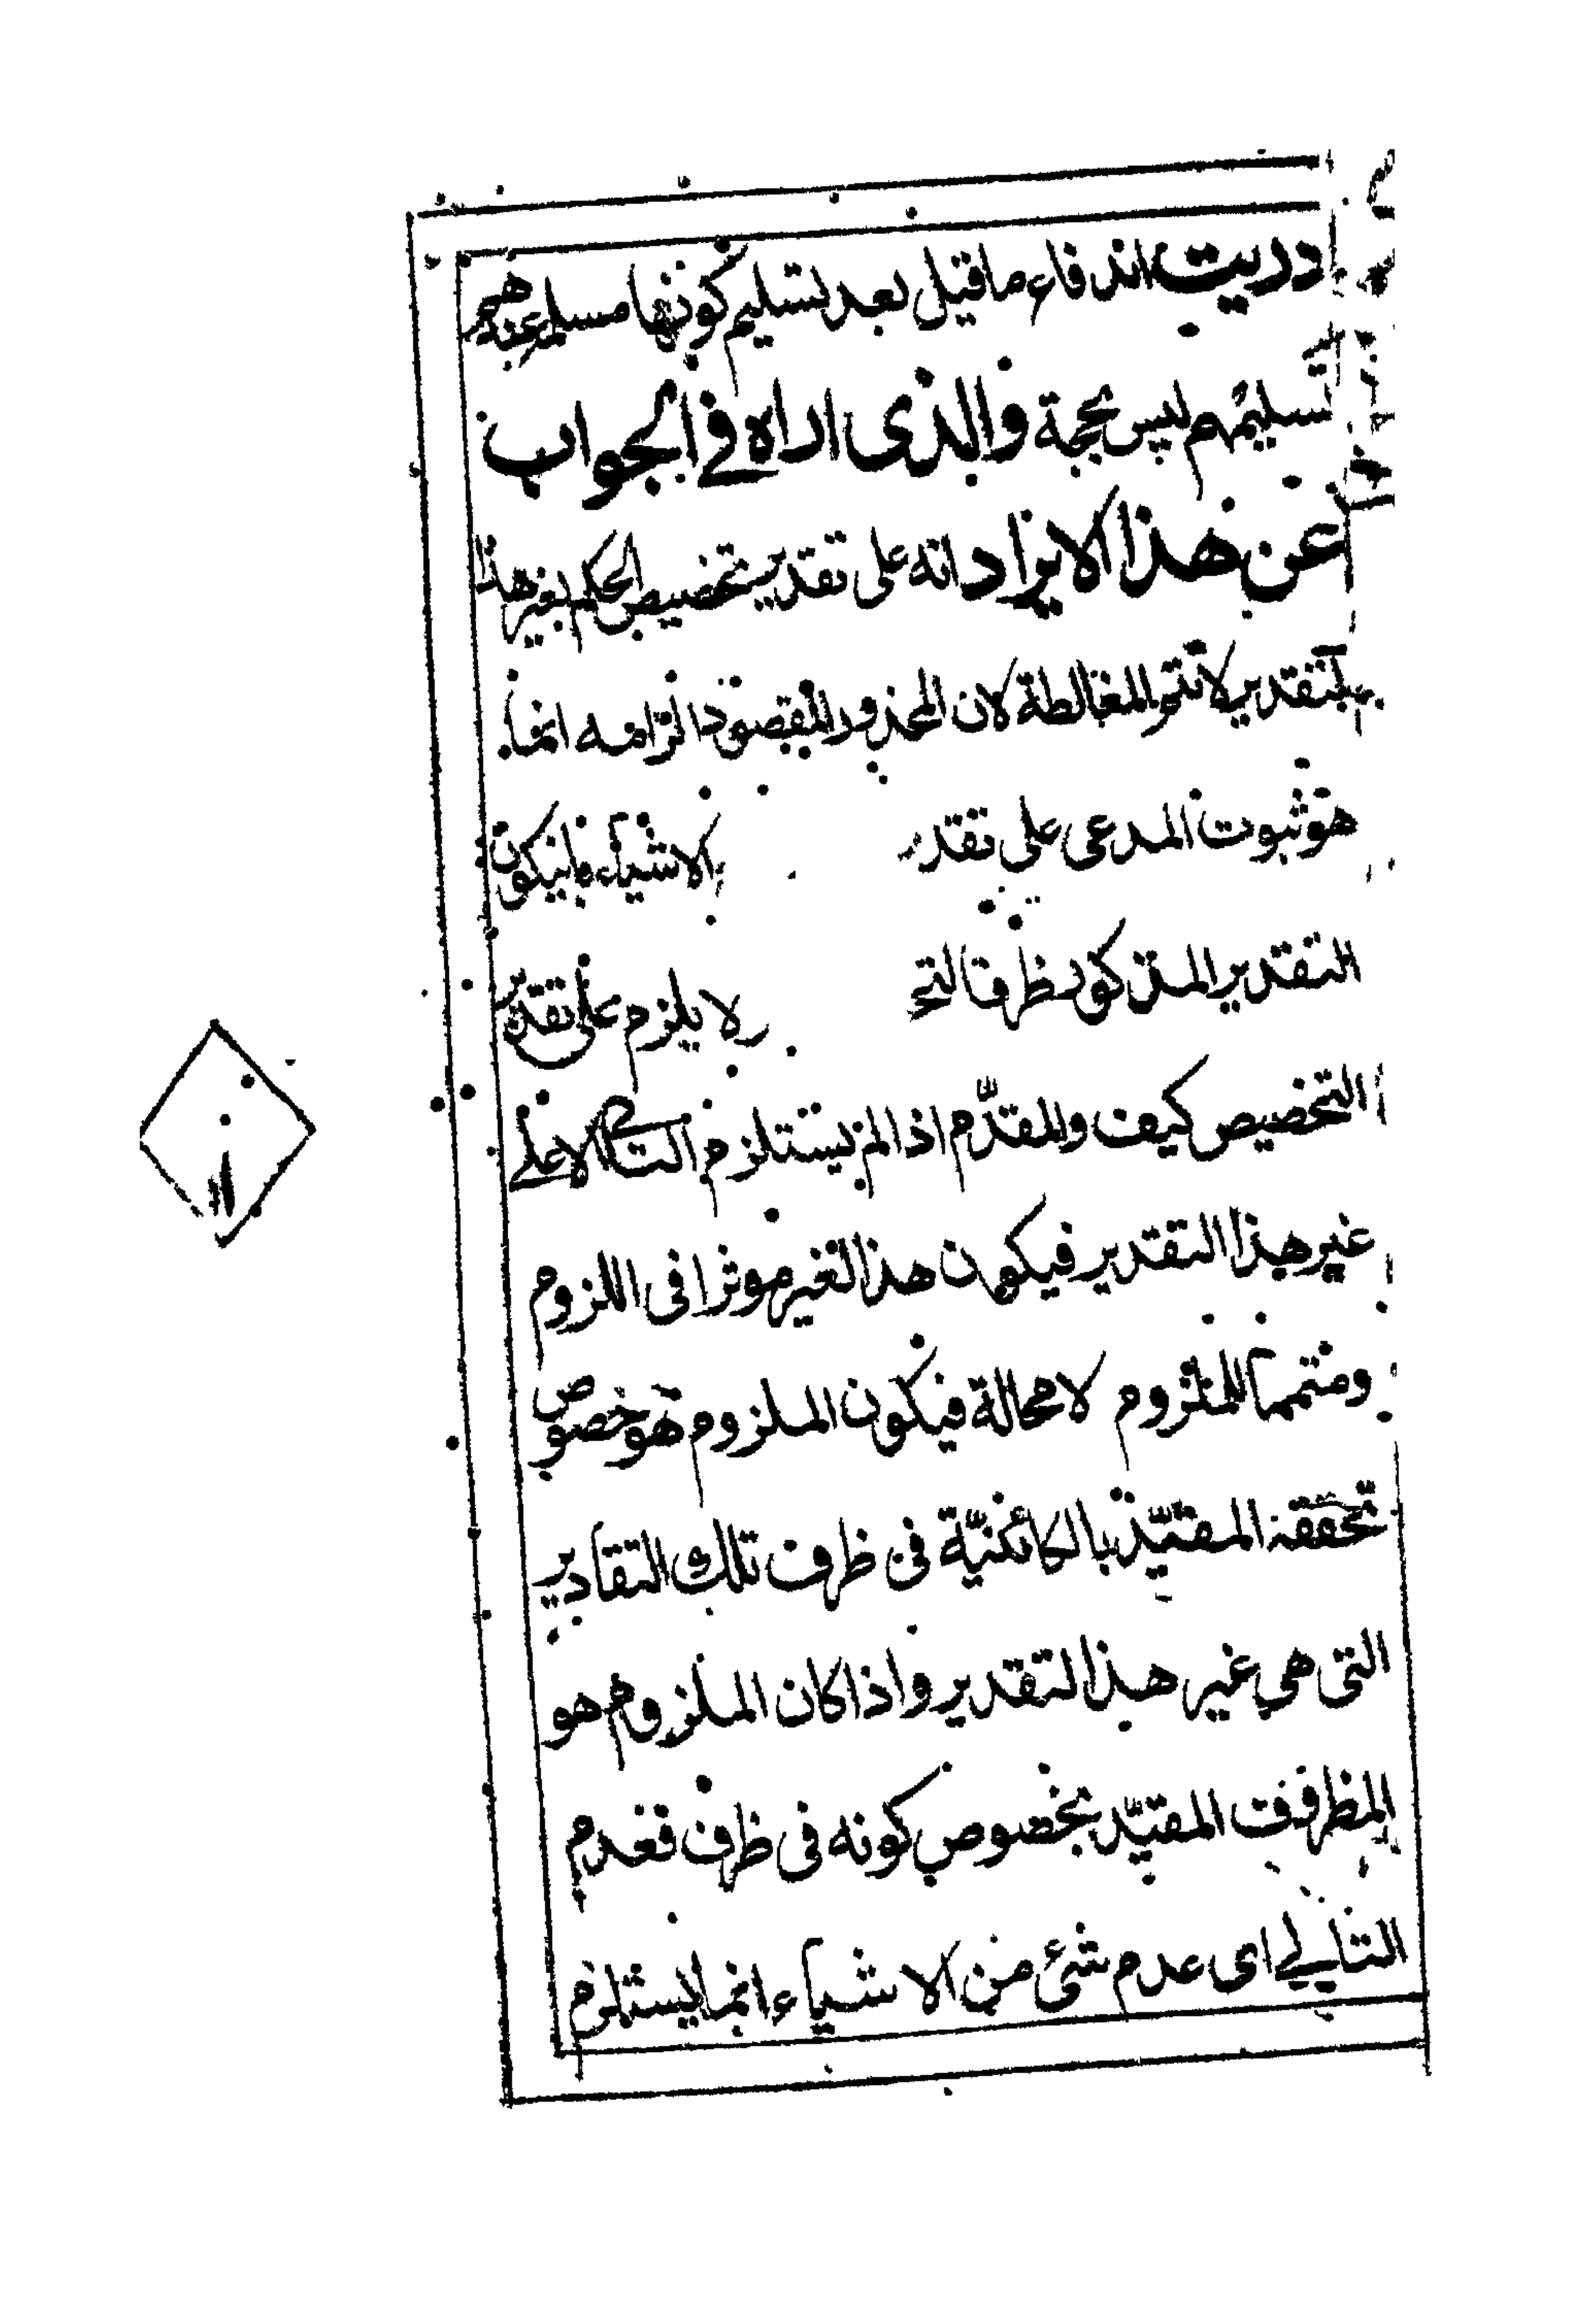 دريت اندفاع ما قيل بعد تسليم كونها مسلمة عندهم
تسليمهم ليس بحجة والذى اراه فى الجواب
عن هذا الايراد انه على تقدير تخصيص الحكم بغير هذا
التقدير لا تتم المغالطة لان المحذور المقصود الزامه انما
هو ثبوت المدعى على تقدير الاشياء بان يكون
التقدير المذكور ظرفا لتح لا يلزم على تقدير
التخصيص كيف والمقدّم اذا لم يستلزم التالى الا على
غير هذا التقدير فيكون هذا الغير موثرا فى اللزوم
ومتمما للملزوم لا محالة فيكون الملزوم هو خصوص
تحققه المقيّد بالكائنيّة فى ظرف تلك التقادير
التى هى غير هذا التقدير واذا كان الملزوم هو
المظروف المقيّد بخصوص كونه فى ظرف فعدم
التالى اى عدم شئ من الاشياء انما يستلزم